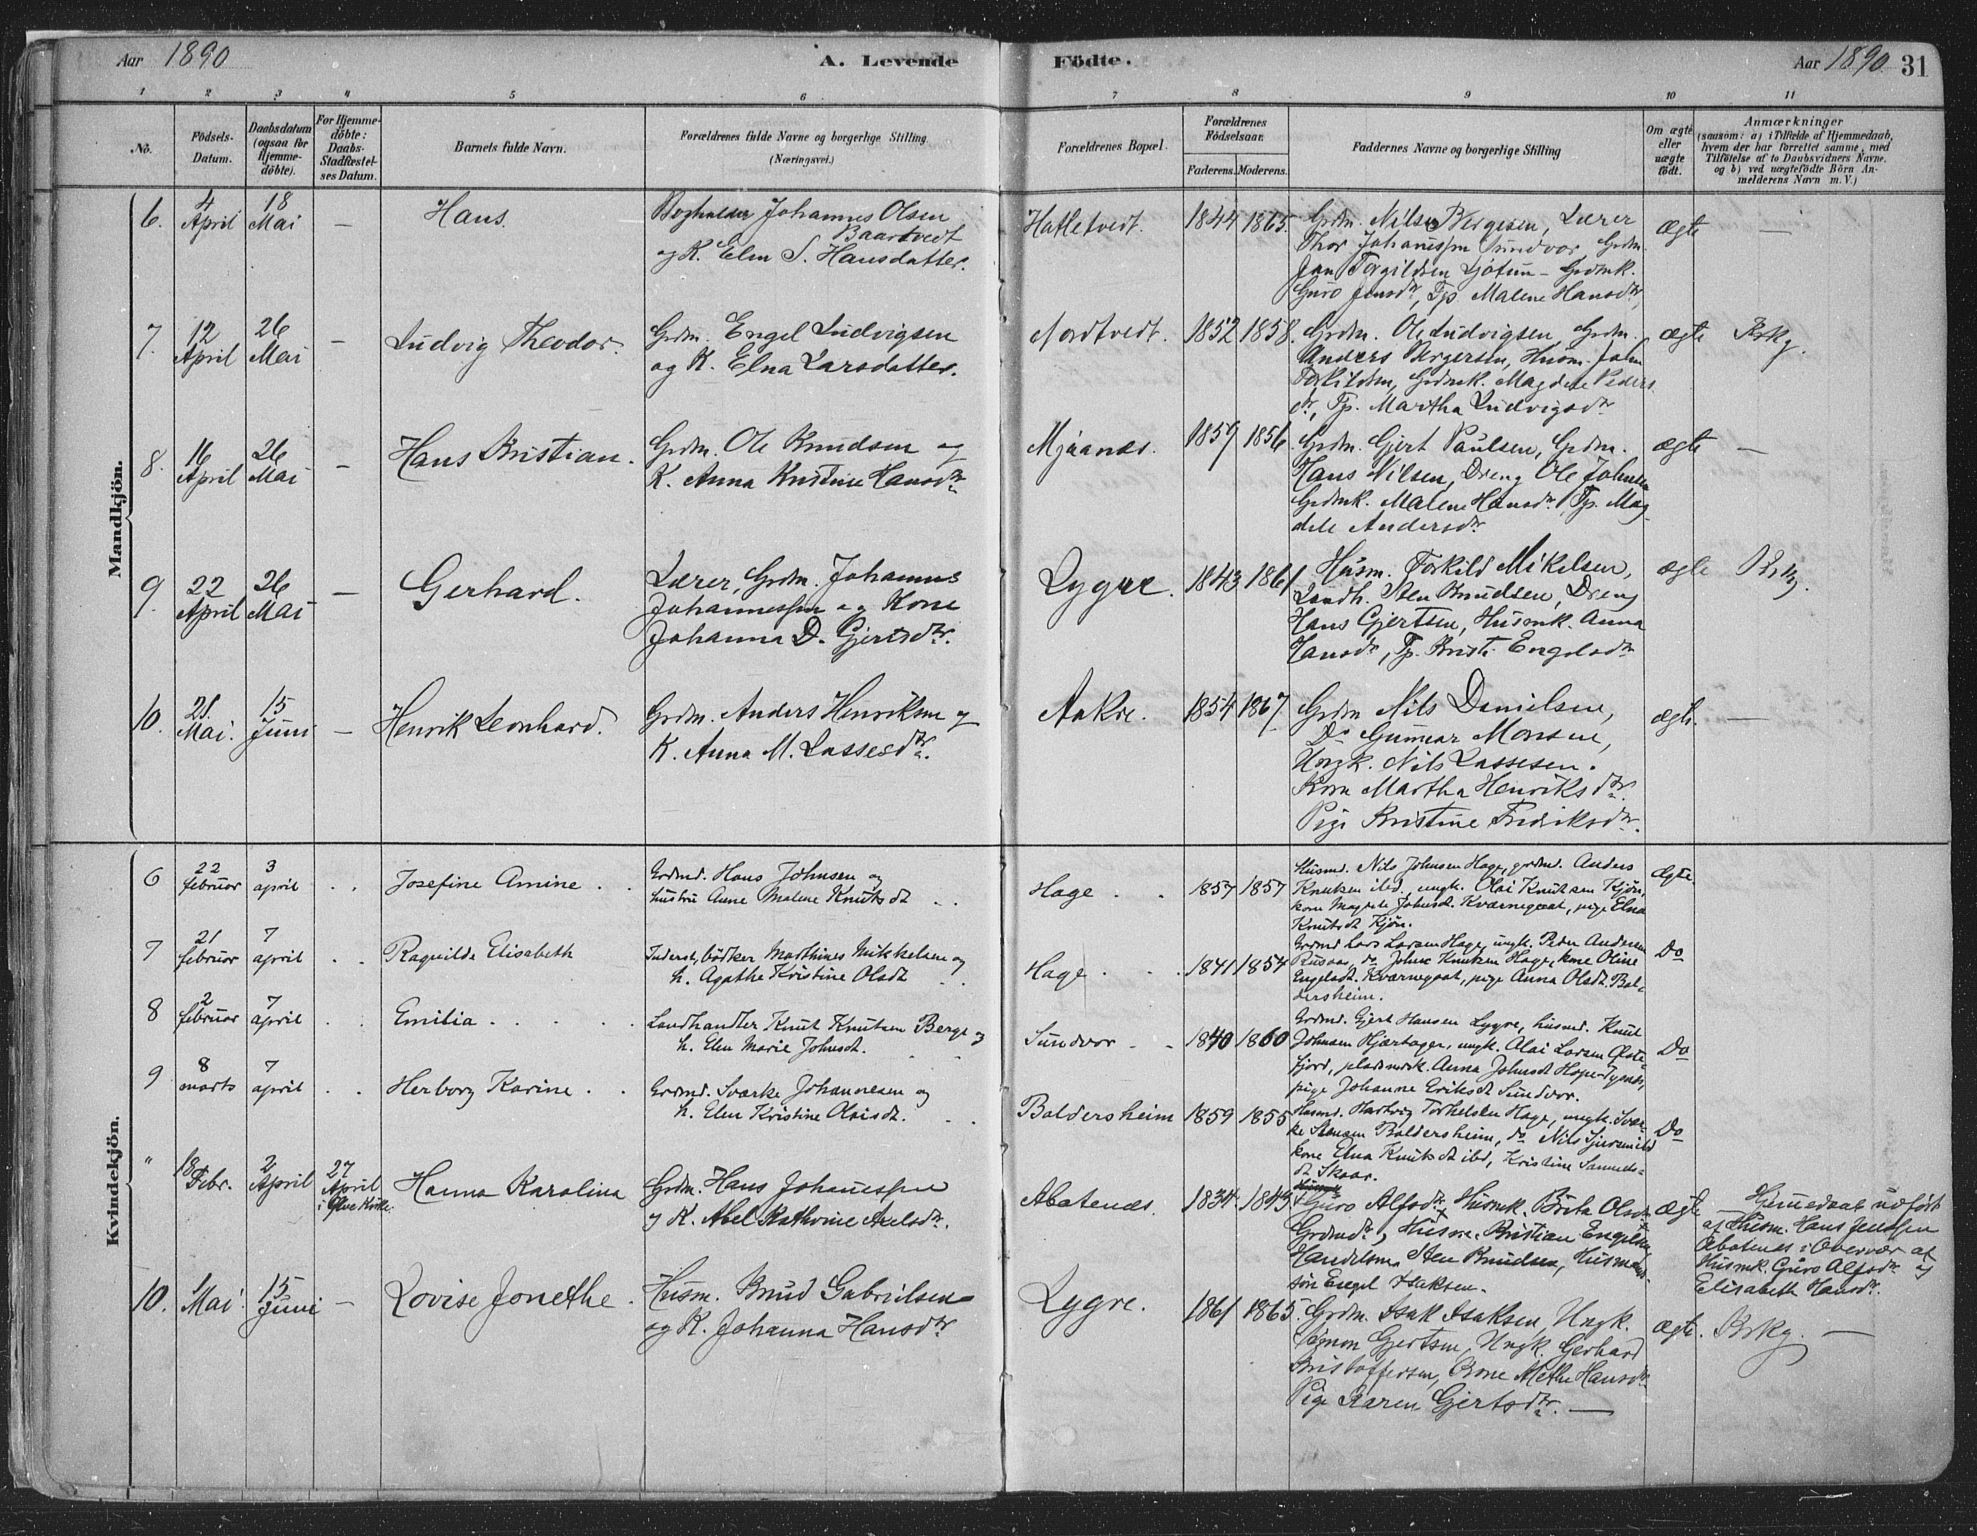 Aar 1890
A. Levende
Födte.
Aar 1890 31
1 2 3 4 5 6 7 8 9 10 11
No.
Födsels-
Datum.
Daabsdatum
(ogsaa for
Hjemme-
döbte).
For Hjemme-
döbte:
Daabs-
Stadfæstel-
ses Datum.
Barnets fulde Navn.
Forældrenes fulde Navne og borgerlige Stilling
(Næringsvei.)
Forældrenes Bopæl.
Forældrenes
Födselsaar.
Faderens. Moderens.
Faddernes Navne og borgerlige Stilling
Om ægte
eller
uægte
födt.
Anmærkninger
(saasom: a) i Tilfælde af Hjemmedaab,
hvem der har forrettet samme, med
Tilföielse af to Daabsvidners Navne.
og b) ved uægtefödte Börn An-
melderens Navn m. V.)
Mandkjön.
6. 4 April 18 Mai —
Hans.
Johannes Olsen
Baartvedt
og K. Elen S. Hansdatter.
Hatletvedt. 1844 1865.
Grdm. Nils Bergesen, Lærer
Thor Johannessen Sundvor, Grdm.
Jan Torgildsen Ljotun – Grdmk.
Guro Jensdtr, Tp. Malene Hansdtr,
Ægte —
7. 12 April 26 Mai —
Ludvig Theodor.
Grdm. Engel Ludvigsen
og K. Elna Larsdatter.
Nordtvedt. 1852 1858.
Grdm. Ole Ludvigsen, Grdm.
Anders Bergersen, Husm. John
Torkildsen, Grdmk. Magdele Peders
dtr, Tp. Martha Ludvigsdtr
ægte Brkg.
8. 16 April 26 Mai —
Hans Kristian.
Grdm. Ole Knudsen og
K. Anna Kristine Hansdtr
Mjaanes. 1859 1856.
Grdm. Gjert Paulsen, Grdm.
Hans Nilsen, Dreng Ole Johnsen
Grdmk. Malene Hansdtr, Tp. Mag-
dele Andersdtr
ægte —
9. 22 April 26 Mai —
Gerhard.
Lærer, Grdm. Johannes
Johannessen og Kone
Johanna D. Gjertsdtr.
Lygre. 1843 1861
Husm. Torkild Mikelsen,
Landh. Sten Knudsen, Dreng
Hans Gjertsen, Husmk. Anna
Hansdtr, Tp. Kristi Engelsdtr
ægte Brkg.
10. 21. Mai. 15 Juni —
Henrik Leonhard.
Grdm. Anders Henriksen og
K. Anna M. Lassesdtr.
Aakre. 1854 1867
Grdm Nils Danielsen,
Do Gunnar Monsen,
Ungk. Nils Lassesen.
Kone Martha Henriksdtr.
Pige Kristine Fredriksdtr.
ægte. —
Kvindekjön.
6 22 februar 3 april . .
Josefine Amine . .
Grdmd. Hans Johnsen og
hustru Anne Malene Knutsdt . .
Hage . . 1857 1857
Husmd. Nils Johnsen Hage, grdmd. Anders
Knutsen ibd, ungk. Olai Knutsen Kjön,
kone Magrete Johnsdt. Kværnegaat, pige Elna
Knutsdt Kjön.
Ægte.
7 21 februar 7 april . .
Ragnilde Elisabeth
Inderst, bödker Marthines Mikkelsen og
h. Agathe Kristine Olsdt . .
Hage . . 1841 1854
Grdmd Lars Larsen Hage, ungk. Peder Andersen
Russaa, do Johne Knutsen Hage, kone Oline
Engelsdt. Kværnegaat, pige Anna Olsdt. Bal-
dersheim.
Do
8 2 februar 7 april . .
Emilia . . . .
Landhandler Knut Knutsen Berge og
h. Elen Marie Johnsdt. . .
Sundvor . . 1840 1860
Grdmd. Gjert Hansen Lygre, husmd. Knut
Johnsen Hjærtager, ungk. Olai Larsen Öste
fjord, pladsmdk. Anna Johnsdt Hope
pige Johanne Eriksdt Sundvor.
Do
9 8 marts 7 april . .
Herborg Karine . .
Grdmd. Sværke Johannesen og
h. Elen Kristine Olaisdt. . .
Baldersheim 1859 1855
Husmd. Hartvig Torkelsen Hage, ungk. Svær-
ke Stensen Baldersheim, do Nils ibd
kone Elna Knutsdt ibd, Kristine Samuels-
dt Skaar.
Do
" 18 Febr. 2 April 27 April i Ölve Kirke.
Hanna Karolina
Grdm. Hans Johannessen
og K. Abel Kathrine Axelsdtr.
Abotenæs. 1834. 1843
Guro Alfsdtr. Husmk. Brita Olsdtr
Grdmdtr, Husm. Kristian Engelsen,
Handelsm. Sten Knudsen, Husmands-
søn Engel Isaksen.
ægte
Hjemmedaab udført
af Husm. Hans Jenssen
Abotenæs i Overvær af
Husmk. Guro Alfsdtr og
Elisabeth Hansdtr.
10. 1 Mai. 15 Juni —
Lovise Jonethe.
Husm. Knud Gabrielsen
og K. Johanna Hansdtr
Lygre. 1861 1865.
Grdm. Isak Isaksen, Ungk.
Simon Gjertsen, Ungk. Gerhard
Kristoffersen, Kone Methe Hansdtr
Pige Karen Gjertsdtr. —
ægte. Brkg. —